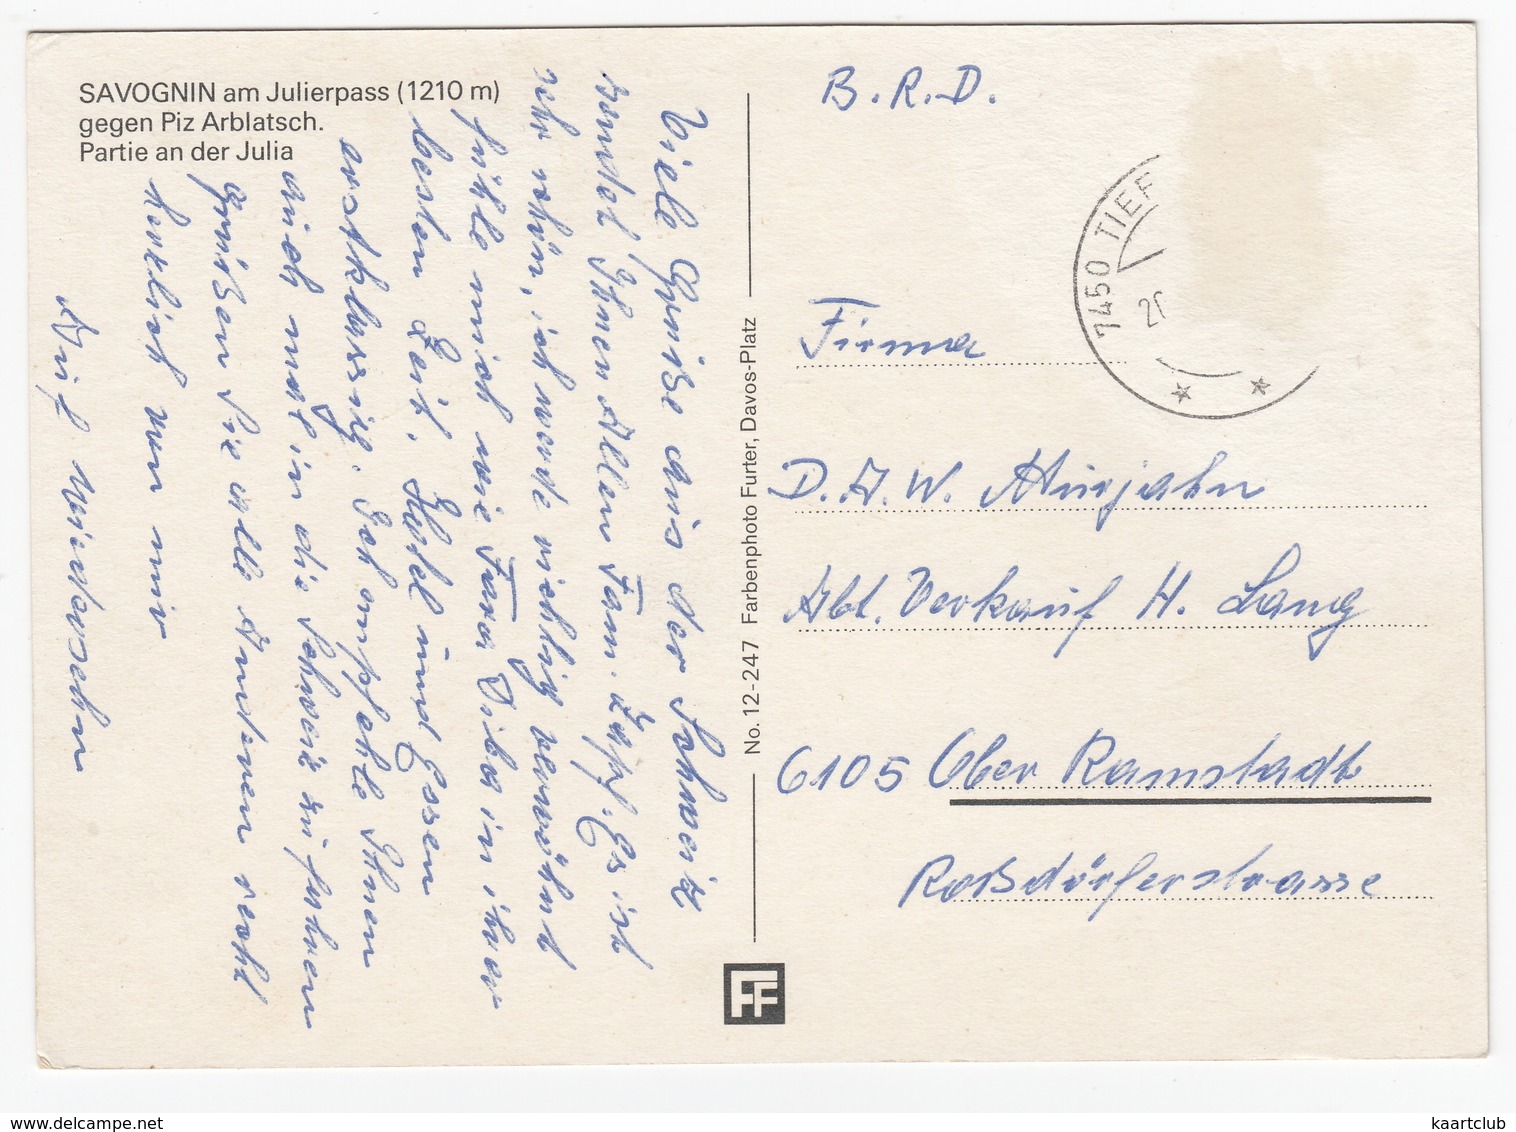 SAVOGNIN am Julierpass (1210 m)
gegen Piz Arblatsch.
Partie an der Julia
Viele Grüße aus der Schweiz
sendet Ihnen Allen Fam. Zapf. Es ist
sehr schön, ich werde richtig verwöhnt
fühle mich wie Fara Diba in ihrer
besten Zeit. Hotel und Essen
erstklassig. Ich empfehle Ihnen
auch mal in die Schweiz zu fahren
grüßen Sie alle Anderen recht
herzlich von mir
Auf Wiedersehn
No. 12-247 Farbenphoto Furter, Davos-Platz
FF
B.R.D.
7450 TIEF
Firma
D.A.W.
Abt. Verkauf H. Lang
6105 Ober Ramstadt
Roßdörferstrasse
kaartclub